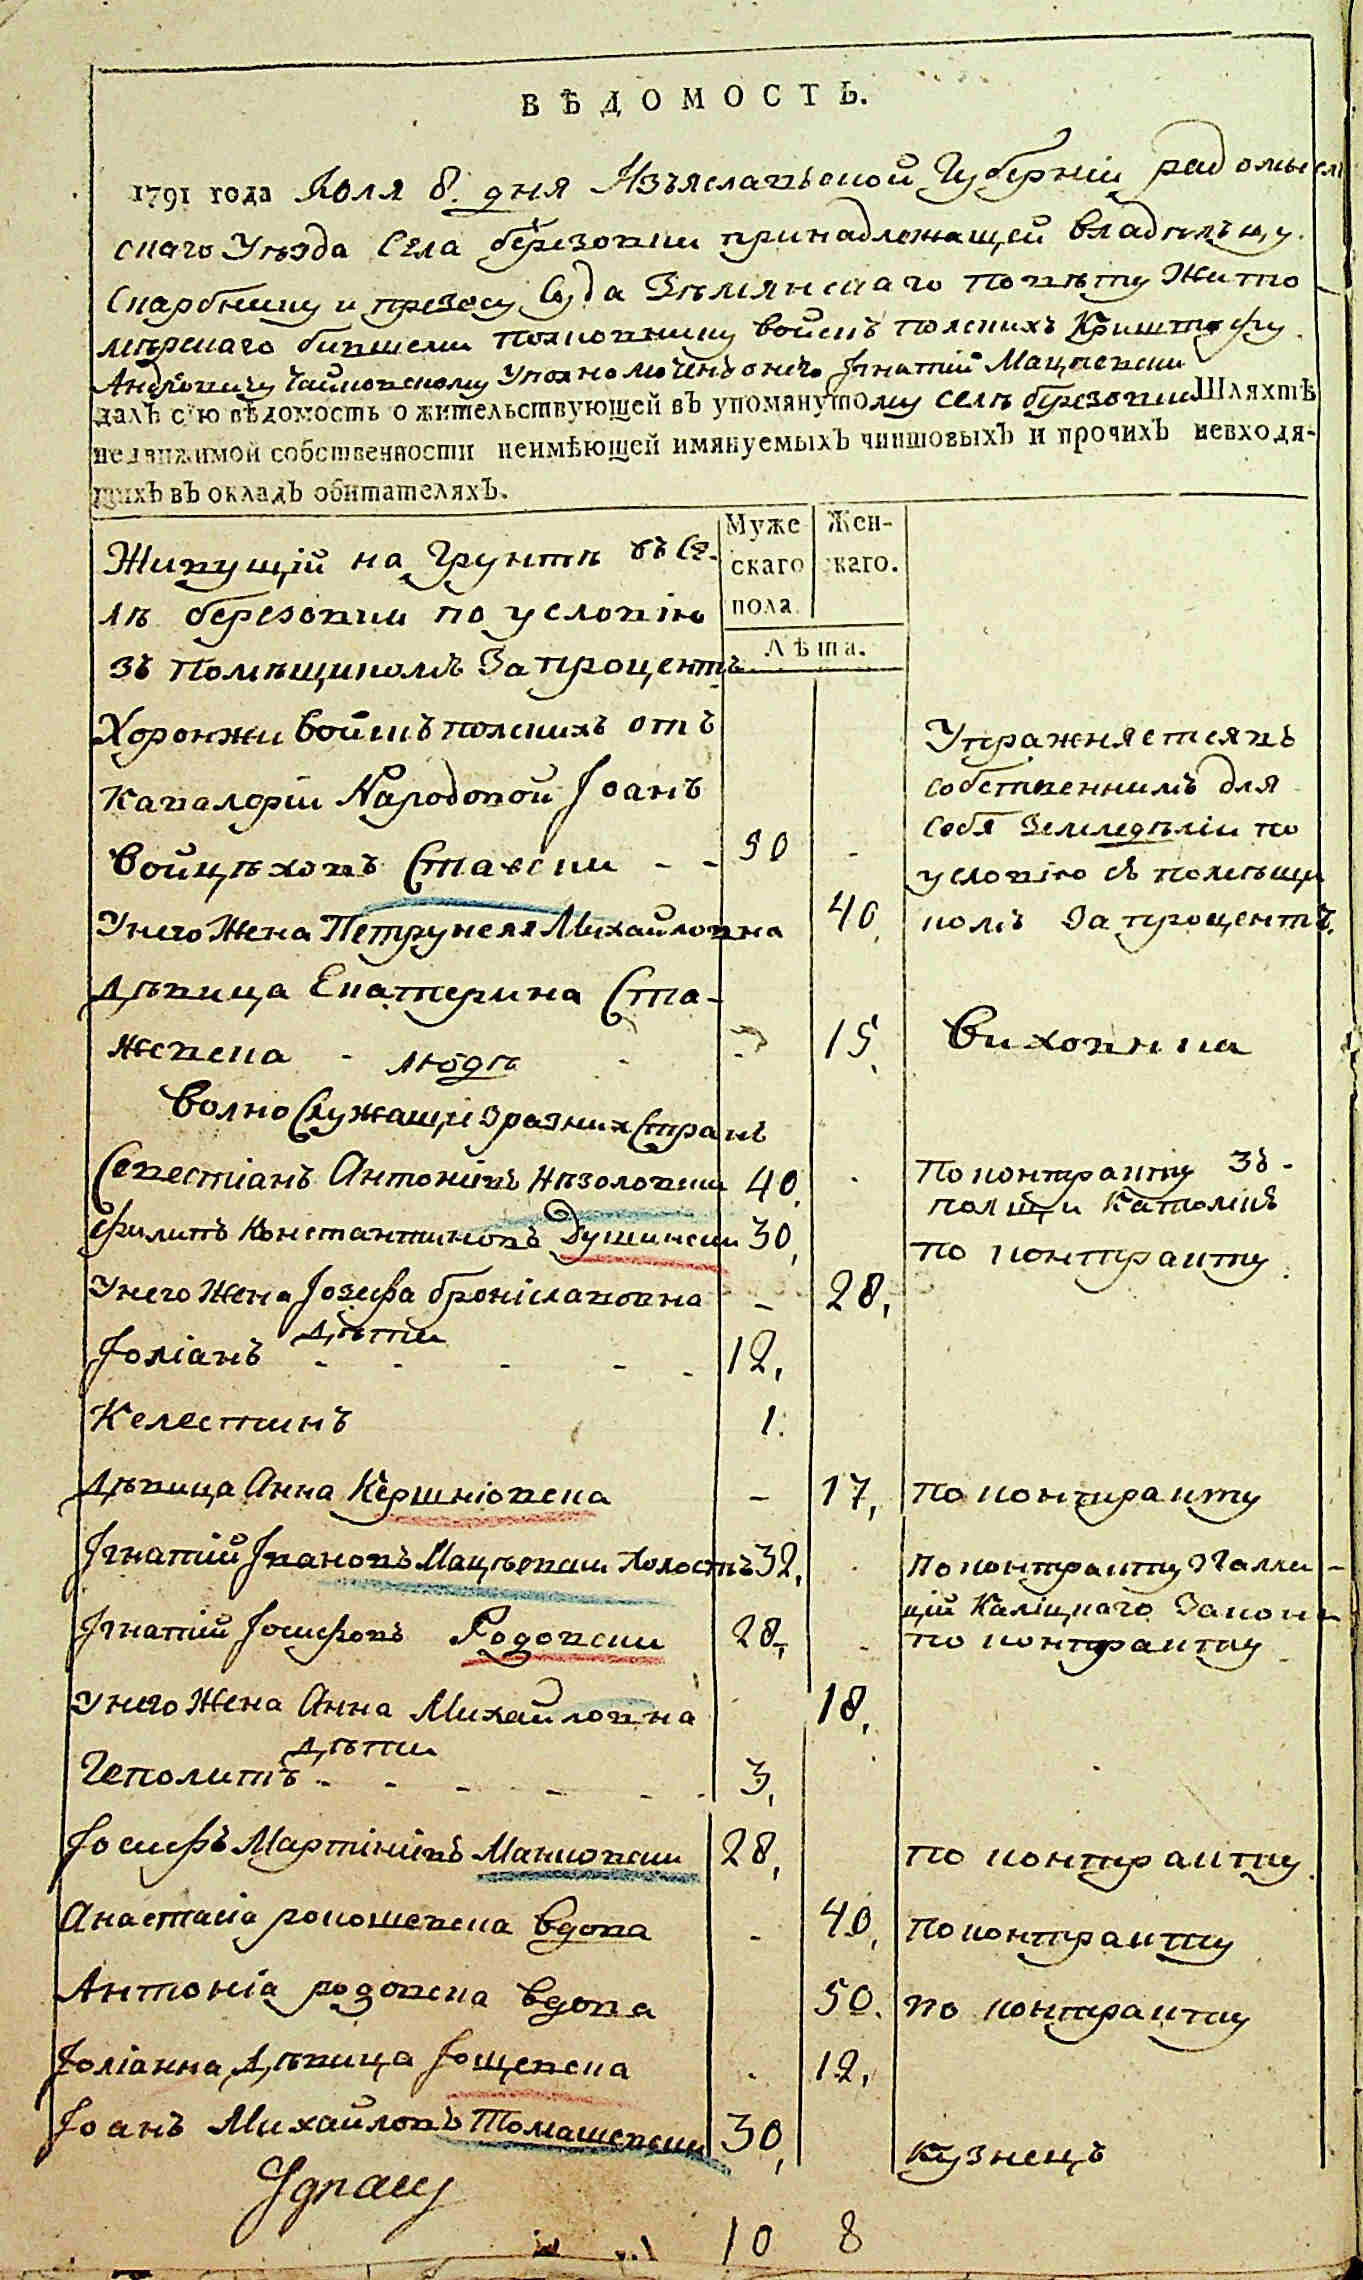 ВѢДОМОСТЬ.
1791 года Іюля 8. дня Изъяславской Губерніи радомысл
скаго Уѣзда Села березовки принадлежащей владѣльцу
Скарбнику и презосу Суда Земянскаго Повѣту Жито
мѣрскаго бившему полковнику войскъ полскихъ Криштофу
Андрѣевичу Чайковскому Уполномоченъ онаго Ігнатій Мацѣевски
далъ сію вѣдомость о жительствующей въ упомянутому селѣ березовки Шляхтѣ
недвижимой собственности неимѣющей имянуемыхъ чиншовыхъ и прочихъ невходя-
щихъ въ окладъ обитателяхъ.
Муже
скаго
пола
Жен-
каго.
Лѣта.
Живущій на Грунтѣ въ Се-
лѣ березовки по условію
зъ Помѣщикомъ За процентъ
Хоронжи войскъ полскихъ отъ
Кавалеріи Народовой Іоанъ
Войцѣховъ Ставски - - 50 -
Упражняется въ
собственнимъ для
себя Земледѣліи по
условію съ помѣщи
комъ За процентъ.
У него Жена Петрунеля Михайловна 40.
Дѣвица Екатерина Ста-
жевска - 15. Виховнка
люде
Волно Служащіе зразних Странъ
Севестіанъ Антоніевъ Низоловски 40. По контракту зъ
полщи Католикъ
Филипъ Константиновъ Душински 30, по контракту
У него Жена Іозефа броніславовна - 28,
дѣти
Іоліанъ - - - - - 12,
Келестинъ 1.
Дѣвица Анна Кершніовска - 17, По контракту
Ігнатій Івановъ Мацѣевски Холостъ 32, По контракту Галли-
ціи Каліцкаго Закона
Ігнатій Іосифовъ Родовски 28, - по контракту
У него Жена Анна Михайловна 18,
дѣти
Геполитъ - - - - - - 3,
Іосифъ Мартініевъ Манковски 28, по контракту
Анастасія рокошевска вдова - 40, По контракту
Антоніа родовска вдова 50. по контракту
Іоліанна Дѣвица Іощевска 12,
Іоанъ Михайловъ Томашевски 30, Кузнецъ
Ignacy
10 8